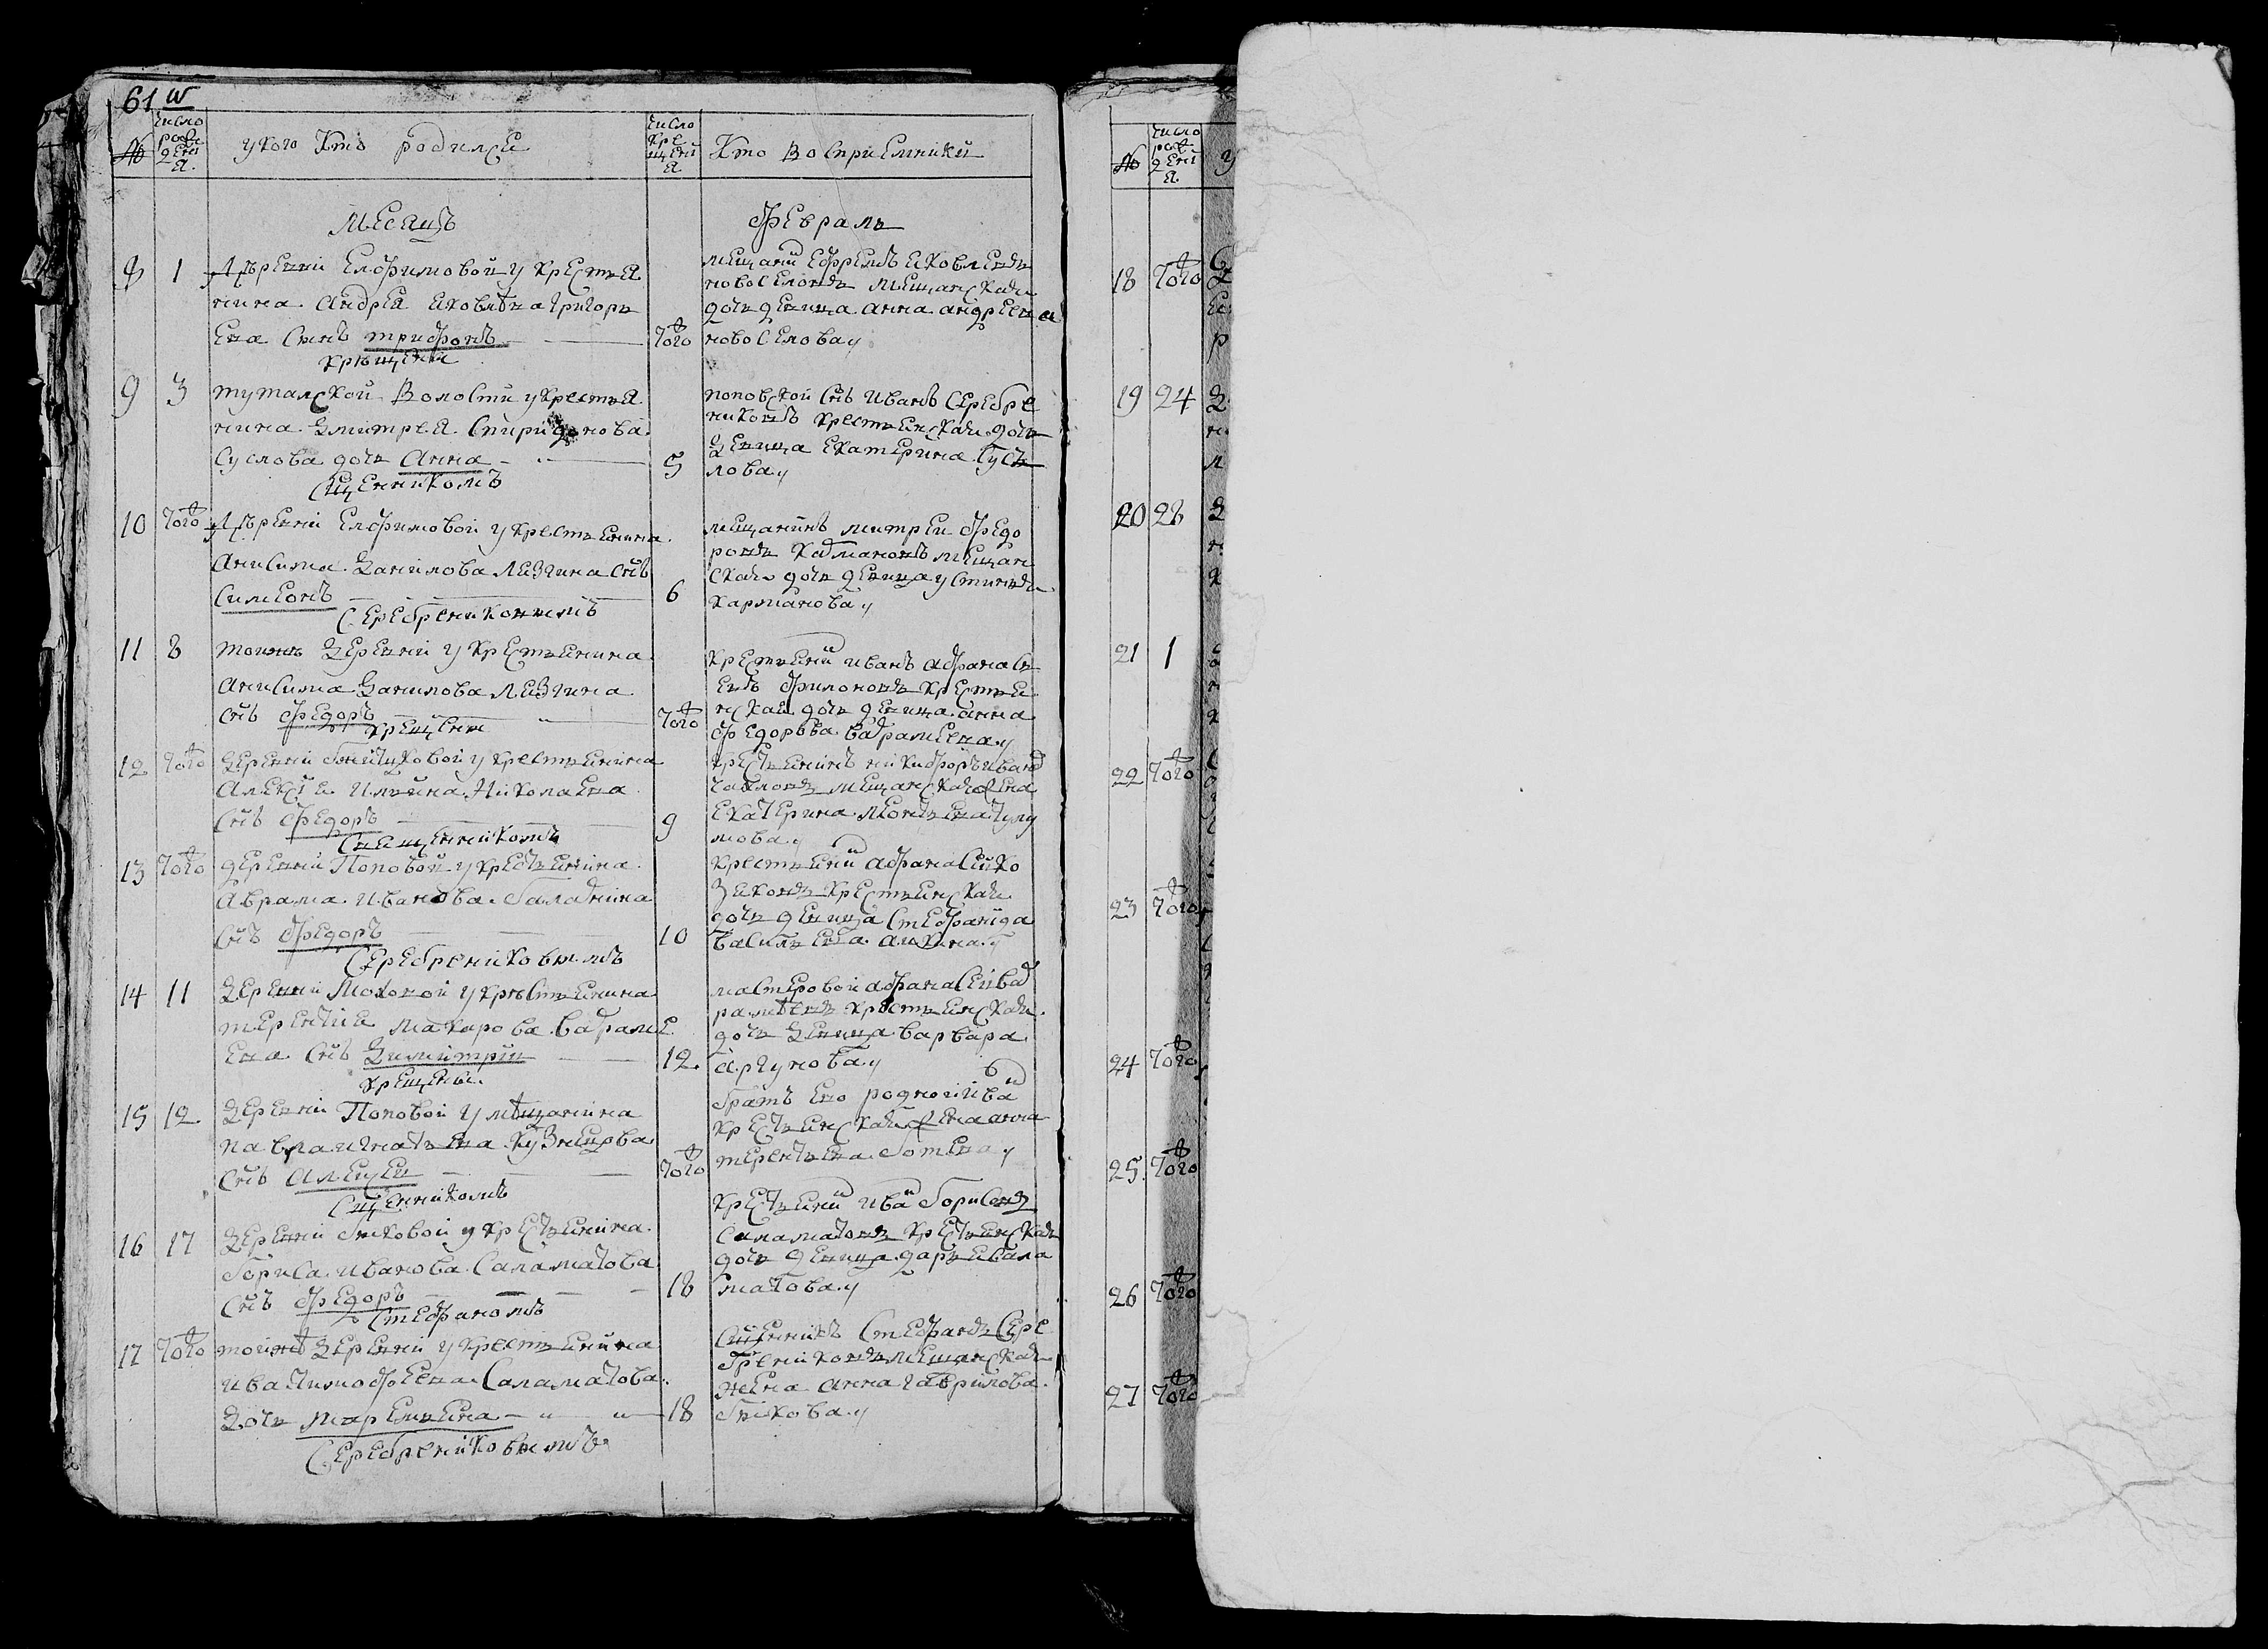 61
№ число рождения у кого кто родился число крещения кто восприемники
месяцъ февраль
8 1 деревни Елфимовой у крестья
нина андрея яковлева григорь
ева сынъ трифонъ тогож
крещени
мещанин ефремъ яковлевъ
новоселовъ мещанская
дочь девица анна андреева
новоселовау
9 3 туталской волости у крестья
нина дмитрея спиридонова
суслова дочь анна 5
сщенникомъ
поповской снъ иванъ серебре
никовъ крестьенская дочь
девица екатерина сусъ
ловау
10 тогож деревни Елфимовой у крестьенина
анисима данилова лезгина снъ
симеонъ 6
серебрениковымъ
мещанинъ митреи федо
ровъ мещан
ская дочь девица устинья
кармановау
11 8 тоижъ деревни у крестьенина
анисима данилова лезгина
снъ федоръ тогож
крещени
крестьенин иванъ афанась
евъ филоновъ крестье
нская дочь девица анна
федорова варамеевау
12 тогож деревни у крестьенина
алексея ильина николаева
снъ федоръ 9
священникомъ
крестьенинъ никифоръ иванов
мещанская жена
екатерина леонтьева
мовау
13 тогож деревни Поповой у крестьенина
аврама иванова баладнина
снъ федоръ 10
серебрениковымъ
крестьенин афанасий ко
зековъ крестьенская
дочь девица стефанида
васильева
14 11 деревни Моховой у крестьенина
терентие макарова варамее
ева снъ димитрии 12
крещени
мастеровои афанасеи ва
рамеевъ крестьенская
дочь девица варвара
аргуновау
15 12 деревни Поповой у мещанина
павла игнатьева кузнецова
снъ алексеи тогож
сщенникомъ
братъ ево родной иван
крестьенская жена анна
терентьева
16 17 деревни быковой у крестьенина
бориса иванова саламатова
снъ федоръ 18
стефаномъ
крестьенин иван борисовъ
саламатовъ крестьенская
дочь девица дарья сала
матовау
17 тогож тоижъ деревни у крестьенина
ива тимофеева саламатова
дочь маремьеяна 18
серебрениковымъ
сщенникъ стефанъ сере
брениковъ мещанская
жена анна гаврилова
быковау
№ число рождения у
18 тогож
19 24
20 28
21 1
22 тогож
23 тогож
24 тогож
25 тогож
26 тогож
27 тогож